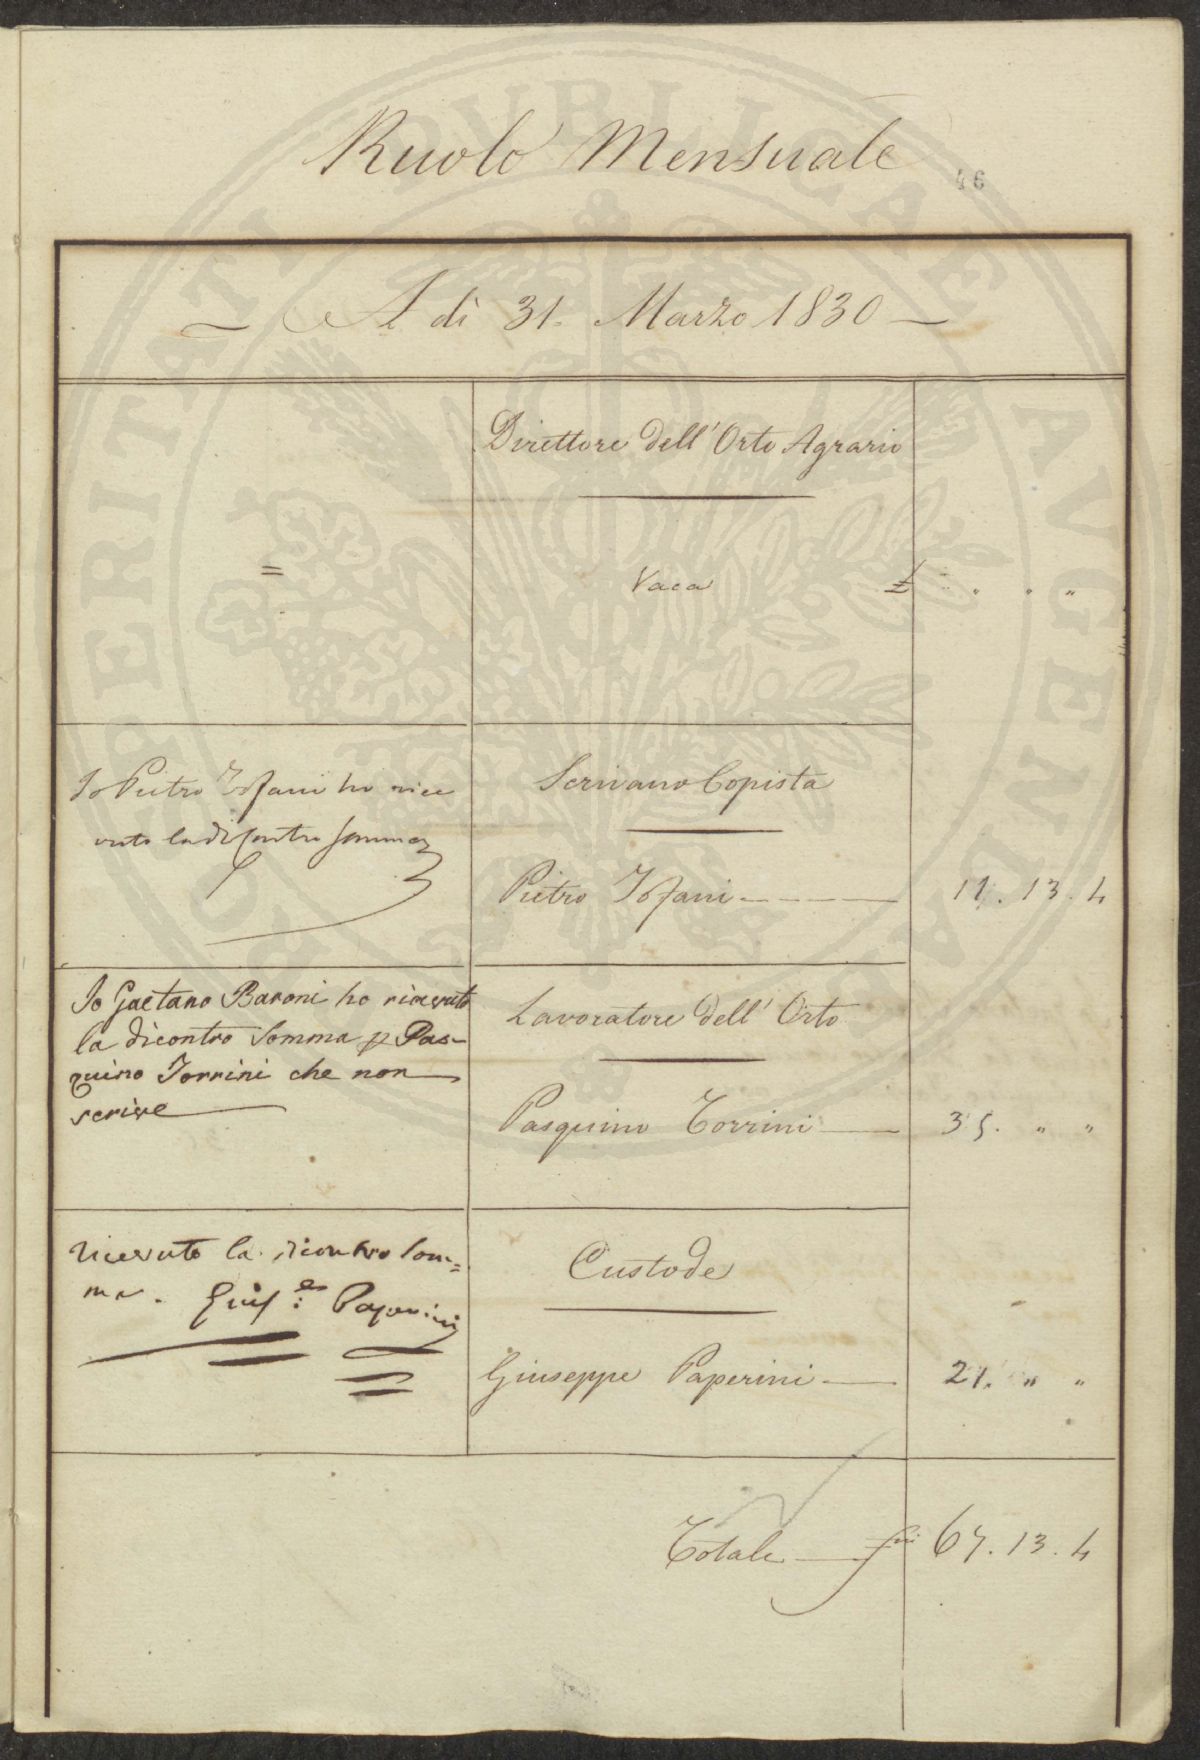 Ruolo Mensuale
46
A dì 31. Marzo 1830
Direttore dell'Orto Agrario
=
Vaca £ " " "
Scrivano Copista
Io Pietro Tofani ho rice
vuto la di contro somma
Pietro Tofani 11. 13. 4
Io Gaetano Baroni ho ricevuto
la dicontro Somma p Pas-
quino Torrini che non
scrive
Lavoratore dell' Orto
Pasquino Torrini 35. " "
ricevuto la dicontro som=
ma. Gius.e Paperini
Custode
Giuseppe Paperini 21. " "
Totale 67. 13. 4
PROSPERITATI PVBLICAE AVGENDAE